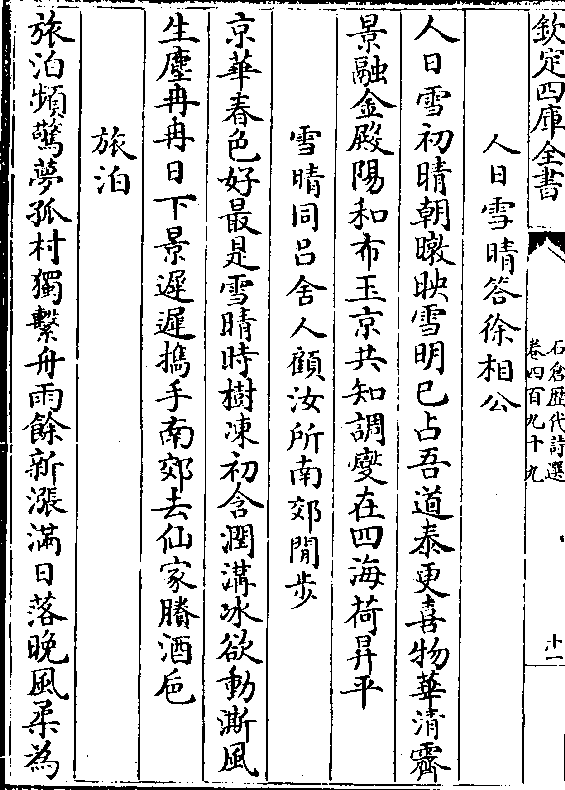 欽定四庫全書
石倉歷代詩選
卷四百九十九
十一
人日雪晴答徐相公
人日雪初晴朝暾映雪明已占吾道泰更喜物華清霽
景融金殿陽和布玉京共知調燮在四海荷昇平
雪晴同呂舍人顧汝所南郊閒步
京華春色好最是雪晴時樹凍初含潤溝冰欲動澌風
生塵冉冉日下景遲遲携手南郊去仙家賸酒巵
旅泊
旅泊頻驚夢孤村獨繫舟雨餘新漲滿日落晚風柔為